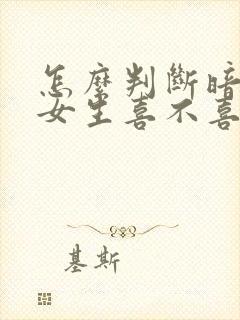 怎麼判斷暗
女生喜不喜
基斯